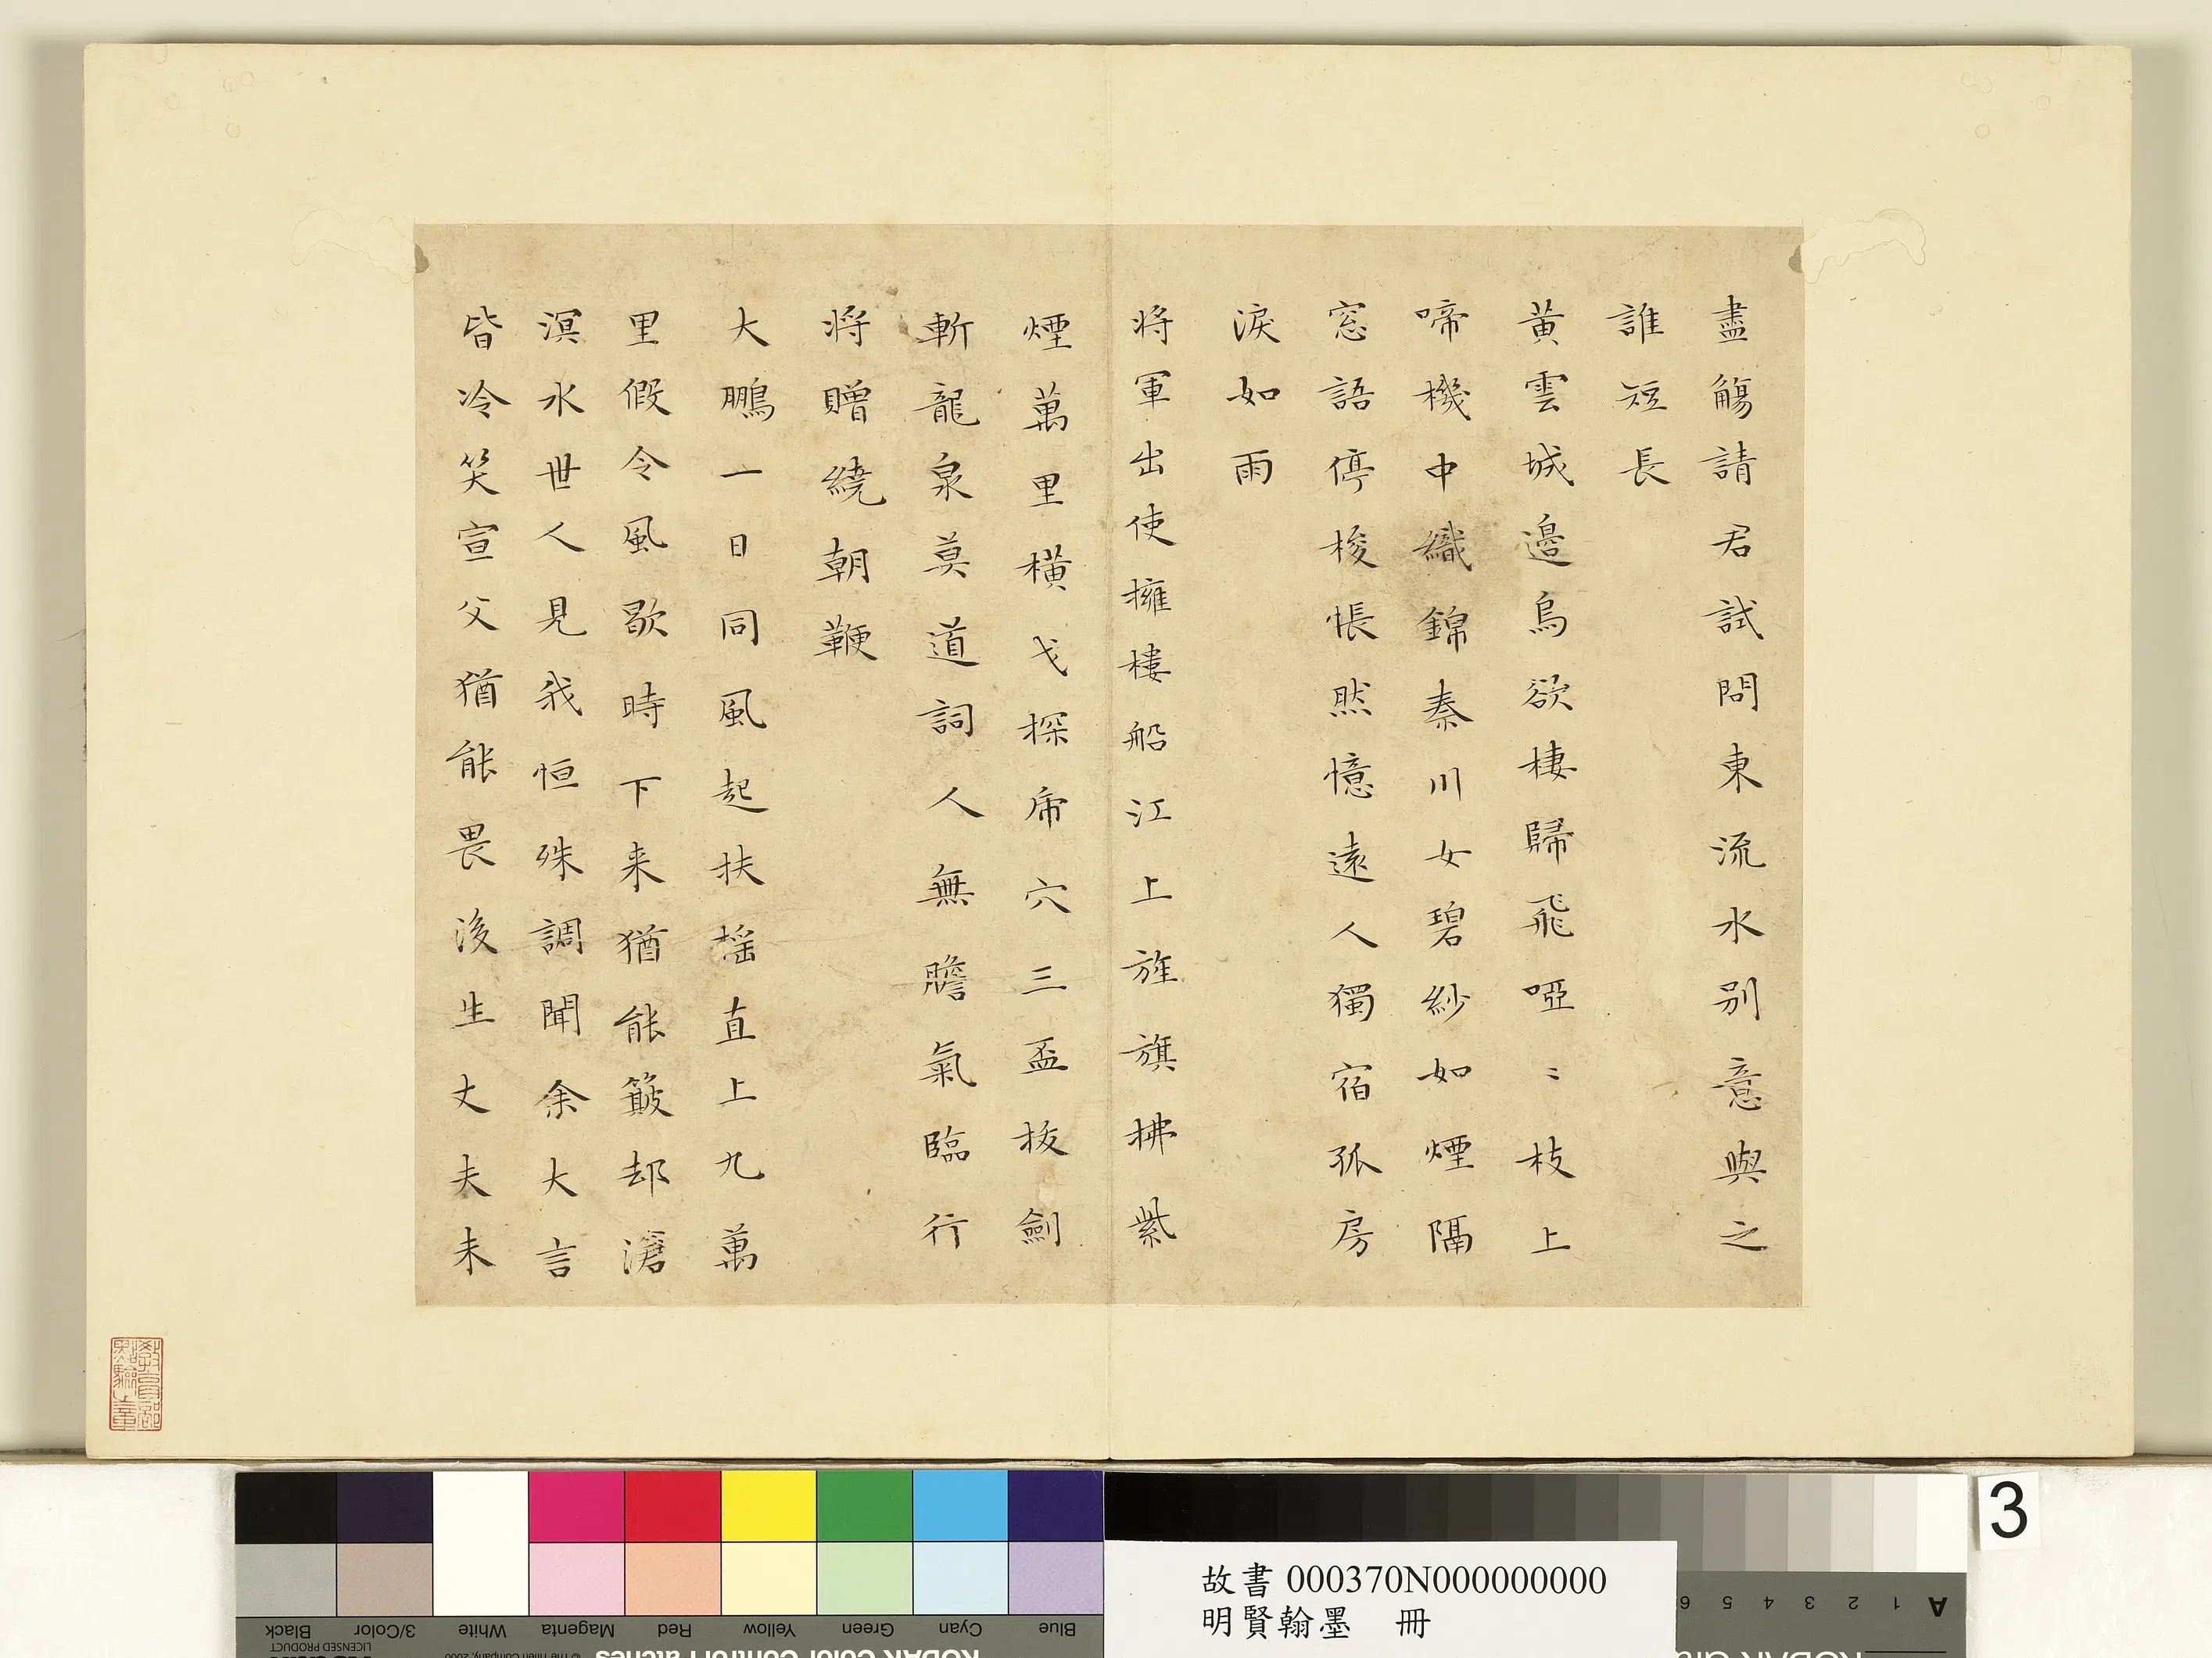 盡觴請君試問東流水別意與之
誰短長
黃雲城邊烏欲棲歸飛啞〻枝上
啼機中織錦秦川女碧紗如煙隔
窓語停梭悵然憶遠人獨宿孤房
淚如雨
將軍出使擁樓船江上旌旗拂紫
煙萬里橫戈探虎穴三盃拔劍
斬龍泉莫道詞人無膽氣臨行
將贈繞朝鞭
大鵬一日同風起扶搖直上九萬
里假令風歇時下来猶能簸却滄
溟水世人見我恒殊調聞余大言
皆冷笑宣父猶能畏後生丈夫未
教育部
點驗之章
Black 3/Color White Magenta Red Yellow Green Cyan Blue
LICENSED PRODUCT
© The Tiffen Company, 2000
KODAK Color Control Patches
故書 000370N000000000
明賢翰墨 冊
A 1 2 3 4 5 6
3